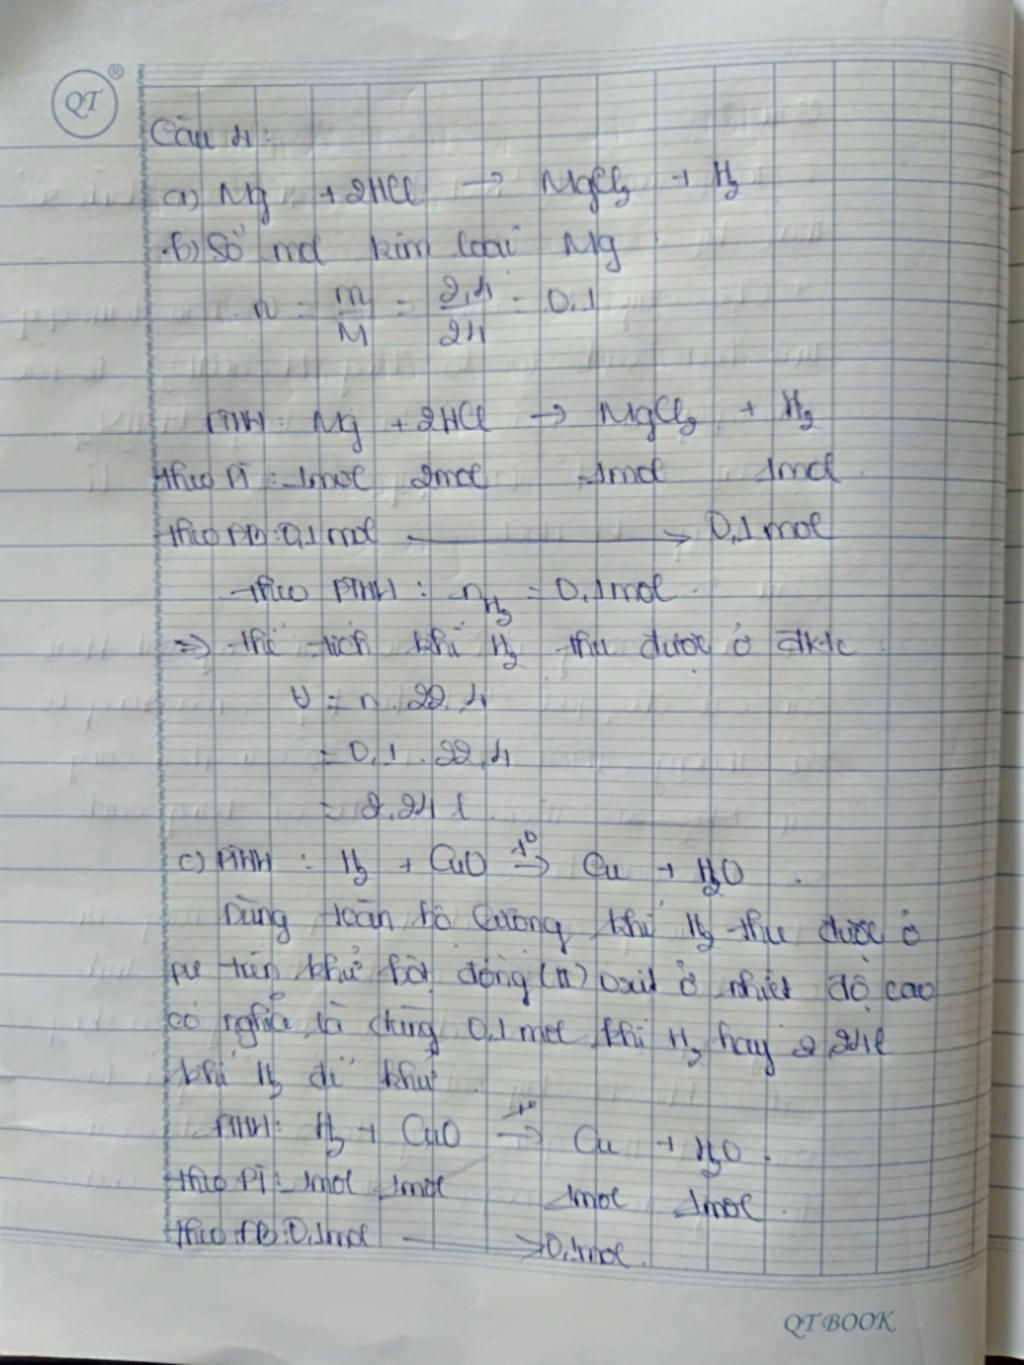 QT ®
Câu 4:
a) Mg + 2HCl → MgCl2 + H2
b) Số mol kim loại Mg
n = m/M = 2,4/24 = 0,1
PTHH: Mg + 2HCl → MgCl2 + H2
theo PT: 1mol 2mol 1mol 1mol
theo ĐB: 0,1mol → 0,1mol
theo PTHH: nH2 = 0,1mol.
=> thể tích khí H2 thu được ở đktc
V = n . 22,4
= 0,1 . 22,4
= 2,24 l
c) PTHH: H2 + CuO t° → Cu + H2O.
Dùng toàn bộ lượng khí H2 thu được ở
pư trên khử bột đồng (II) oxit ở nhiệt độ cao
có nghĩa là dùng 0,1 mol khí H2 hay 2,24l
khí H2 để khử
PTHH: H2 + CuO t° → Cu + H2O.
theo PT: 1mol 1mol 1mol 1mol.
theo ĐB: 0,1mol → 0,1mol.
QT BOOK